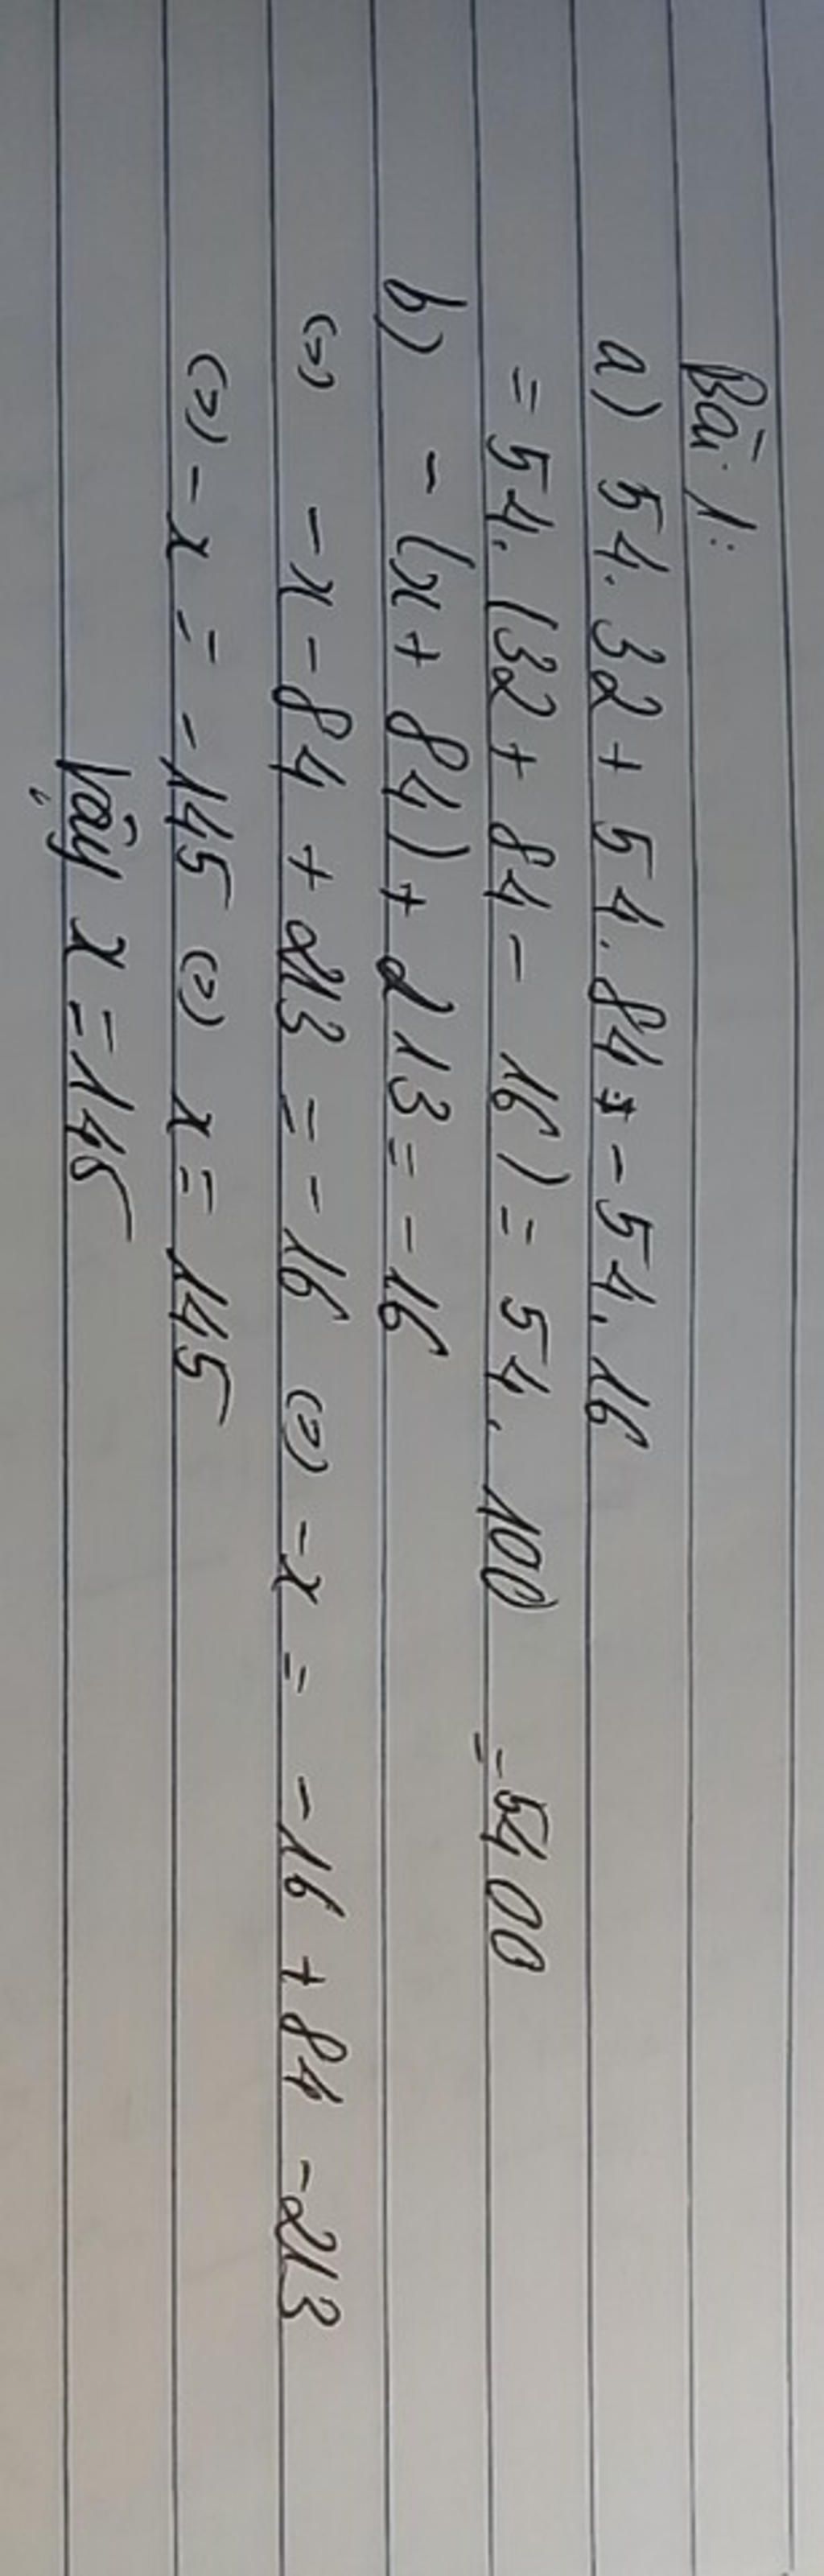 Bài 1:
a) 54. 32 + 54. 84 - 54. 16
= 54. (32 + 84 - 16) = 54. 100 = 5400
b) - (x + 84) + 213 = - 16
(=) - x - 84 + 213 = - 16 (=) - x = - 16 + 84 - 213
(=) - x = - 145 (=) x = 145
Vậy x = 145